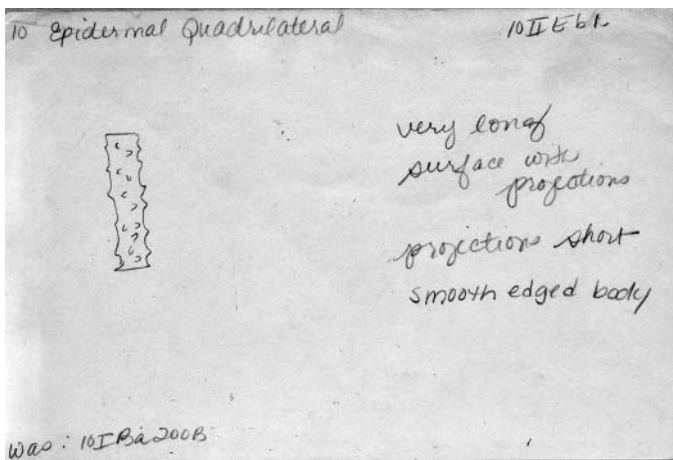 10 Epidermal Quadrilateral
10IIEb1
very long
surface with
projections
projections short
smooth edged body
was: 10IBa200B